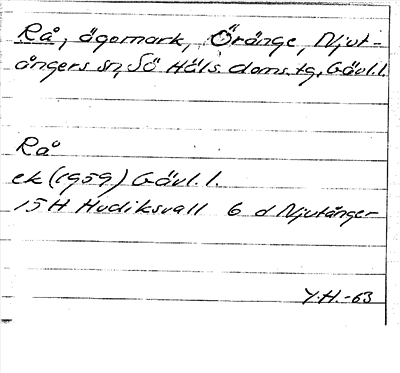 Rå, ägomark, Öränge, Njut-
ångers sn, Sö Häls. doms. tg, Gävl. l.
Rå
ek (1959) Gävl. l.
15H Hudiksvall 6 d Njutånger
Y.H.-63